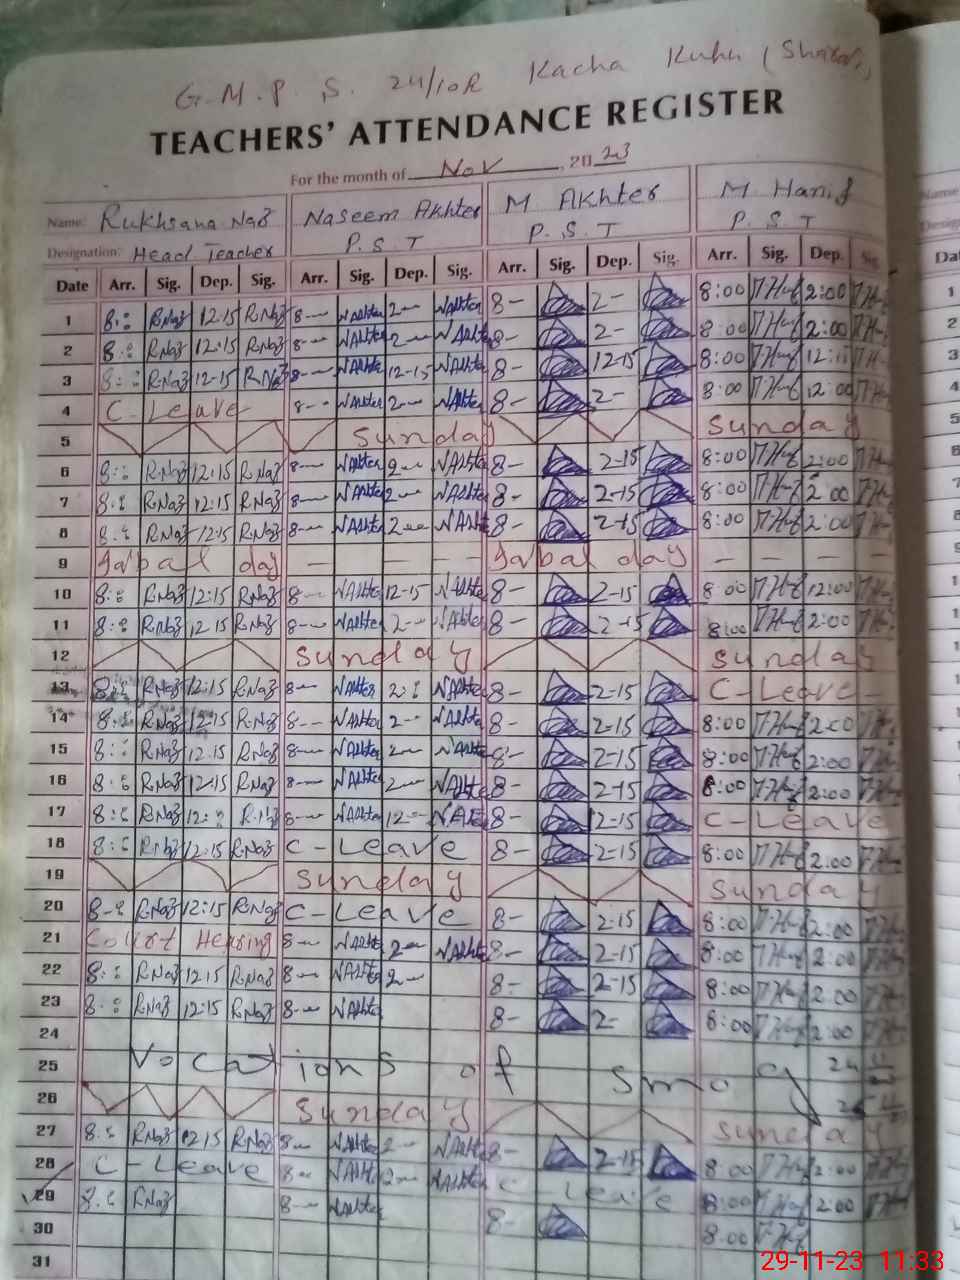 G.M.P.S. 24/10R Kacha Kuhu
TEACHERS' ATTENDANCE REGISTER
For the month of Nov, 2023
Name: Rukhsana Naz Naseem Akhter M Akhter M Hanif
Designation: Head Teacher P.S.T P.S.T P.S.T
Date Arr. Sig. Dep. Sig. Arr. Sig. Dep. Sig. Arr. Sig. Dep. Sig. Arr. Sig. Dep. Sig.
1 8:: RNaz 12:15 RNaz 8— NAkhter 2— NAkhter 8- 2- 8:00 2:00
2 8:: RNaz 12:15 RNaz 8— NAkhter 2— NAkhter 8- 2- 8:00 2:00
3 8:: RNaz 12-15 RNaz 8— NAkhter 12-15 NAkhter 8- 12-15 8:00
4 C-Leave 8-- NAkhter 2— NAkhter 8- 2- 8:00 12:00
5 Sunday Sunday
6 8:: RNaz 12:15 RNaz 8— NAkhter 2— NAkhter 8- 2-15 8:00 2:00
7 8:: RNaz 12:15 RNaz 8— NAkhter 2— NAkhter 8- 2-15 8:00 2:00
8 8:: RNaz 12:15 RNaz 8— NAkhter 2— NAkhter 8- 2-15 8:00 2:00
9 Iqbal day — — — — Iqbal day — — — —
10 8:: RNaz 12:15 RNaz 8— NAkhter 12-15 NAkhter 8- 2-15 8:00 12:00
11 8:: RNaz 12:15 RNaz 8— NAkhter 2— NAkhter 8- 2-15 8:00 2:00
12 Sunday Sunday
13 8:: RNaz 12:15 RNaz 8— NAkhter 2:: NAkhter 8- 2-15 C-Leave
14 8:: RNaz 12:15 RNaz 8-- NAkhter 2— NAkhter 8- 2-15 8:00 2:00
15 8:: RNaz 12:15 RNaz 8— NAkhter 2— NAkhter 8- 2-15 8:00 2:00
16 8:: RNaz 12:15 RNaz 8— NAkhter 2— NAkhter 8- 2-15 8:00 2:00
17 8:: RNaz 12:: RNaz 8— NAkhter 12-- 8- 12-15 C-Leave
18 8:: RNaz 12:15 RNaz C-Leave 8- 2-15 8:00 2:00
19 Sunday Sunday
20 8-: RNaz 12:15 RNaz C-Leave 8- 2-15 8:00 2:00
21 Court Hearing 8— NAkhter 2— NAkhter 8- 2-15 8:00 2:00
22 8:: RNaz 12:15 RNaz 8— NAkhter 2— 8- 2-15 8:00 2:00
23 8:: RNaz 12:15 RNaz 8— NAkhter 8- 2- 8:00 2:00
24
25 Vocations of Smog
26 Sunday Sunday
27 8:: RNaz 12:15 RNaz 8— NAkhter 2— NAkhter 8- 2-15 8:00 2:00
28 C-Leave 8-- NAkhter 2— NAkhter C-Leave 8:00 2:00
29 8:: RNaz 8— NAkhter 8- 8:00
30
31
29-11-23 11:33